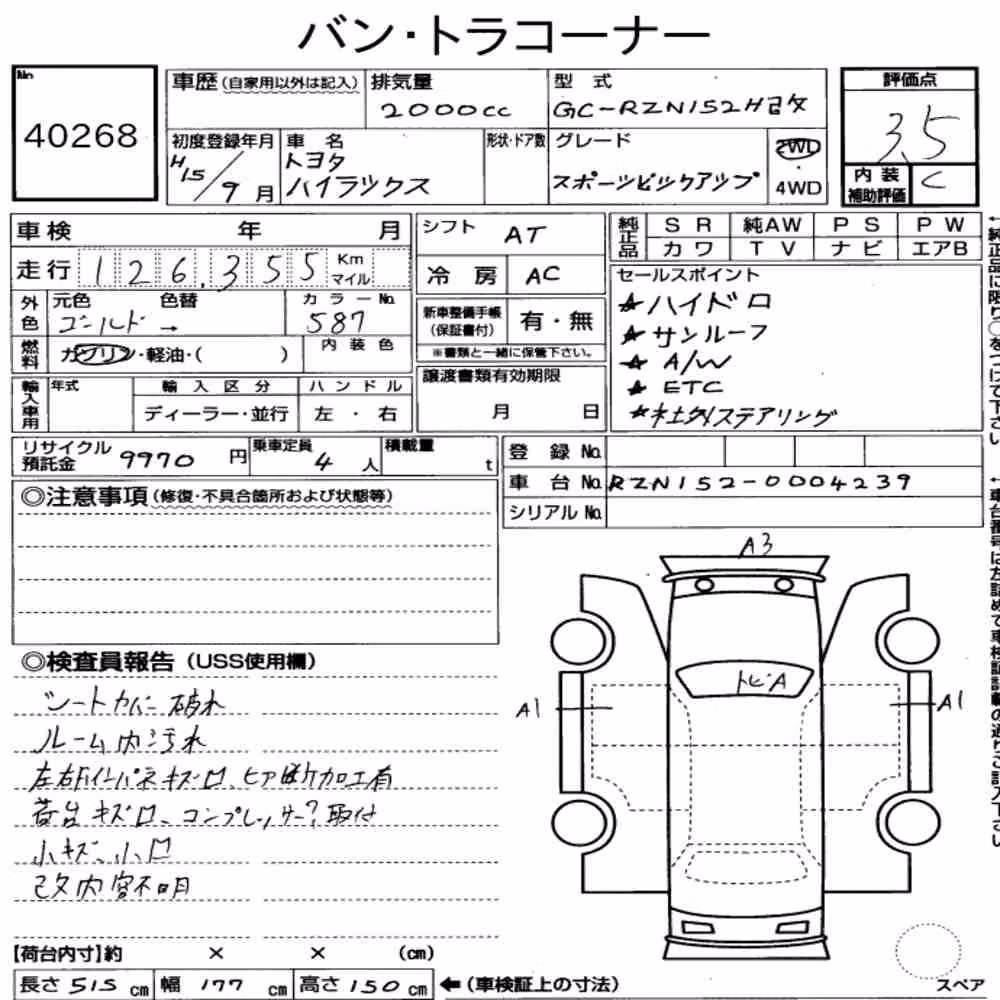 バン・トラコーナー
No
40268
車歴 (自家用以外は記入)
排気量
2000cc
型式
GC-RZN152H改
評価点
3.5
初度登録年月
H15/9月
車名
トヨタ
ハイラックス
形状・ドア数
グレード
スポーツピックアップ
2WD
・
4WD
内装
補助評価
C
車検 年 月
走行 126,355 Km
マイル
シフト AT
冷房 AC
純正品
SR 純AW PS PW
カワ TV ナビ エアB
外色
元色 色替
ゴールド →
カラーNo.
587
新車整備手帳
(保証書付)
有・無
※書類と一緒に保管下さい。
セールスポイント
★ハイドロ
★サンルーフ
★A/W
★ETC
★社外ステアリング
燃料
ガソリン・軽油・( )
内装色
輸入車用
年式
輸入区分
ディーラー・並行
ハンドル
左・右
譲渡書類有効期限
月 日
リサイクル
預託金 9970円
乗車定員
4人
積載量
t
登録No.
車台No. RZN152-0004239
シリアルNo.
◎注意事項 (修復・不具合箇所および状態等)
◎検査員報告 (USS使用欄)
シートカバー破れ
ルーム内汚れ
左右Rインパネキズ凹、
加工有
荷台キズ凹、コンプレッサー?取付
小キズ、小凹
改内容不明
A3
トビA
A1
A1
【荷台内寸】約 × × (cm)
長さ 515 cm 幅 177 cm 高さ 150 cm ←(車検証上の寸法)
スペア
←純正品に限り○をつけて下さい
←車台番号は左詰めで車検証記載の通りご記入下さい